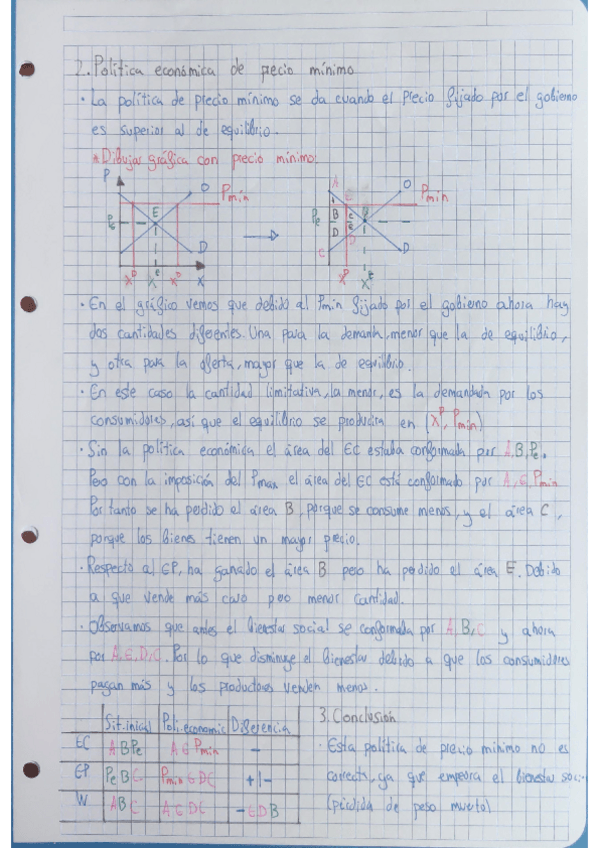 2. Política económica de precio mínimo
· La política de precio mínimo se da cuando el precio fijado por el gobierno
es superior al de equilibrio.
* Dibujar gráfica con precio mínimo:
P O Pmin E Pe D X^D X^E X^O X
A E O Pmin Pe B C D C D X^D X^E
· En el gráfico vemos que debido al Pmin fijado por el gobierno ahora hay
dos cantidades diferentes. Una para la demanda, menor que la de equilibrio,
y otra para la oferta, mayor que la de equilibrio.
· En este caso la cantidad limitativa, la menor, es la demandada por los
consumidores, así que el equilibrio se producira en (X^D, Pmin)
· Sin la política económica el área del EC estaba conformada por A,B,Pe.
Pero con la imposición del Pmax el área del EC está conformado por A,E,Pmin
Por tanto se ha perdido el área B, porque se consume menos, y el área C,
porque los bienes tienen un mayor precio.
· Respecto al EP, ha ganado el área B pero ha perdido el área E. Debido
a que vende más caro pero menor cantidad.
· Observamos que antes el bienestar social se conformada por A,B,C y ahora
por A,E,D,C. Por lo que disminuye el bienestar debido a que los consumidores
pagan más y los productores venden menos.
Sit.inicial Poli.economic Diferencia
EC ABPe AEPmin -
EP PeBC PminEDC +/-
W ABC AEDC -EDB
3. Conclusión
· Esta política de precio mínimo no es
correcta, ya que empeora el bienestar soci-
(pérdida de peso muerto)